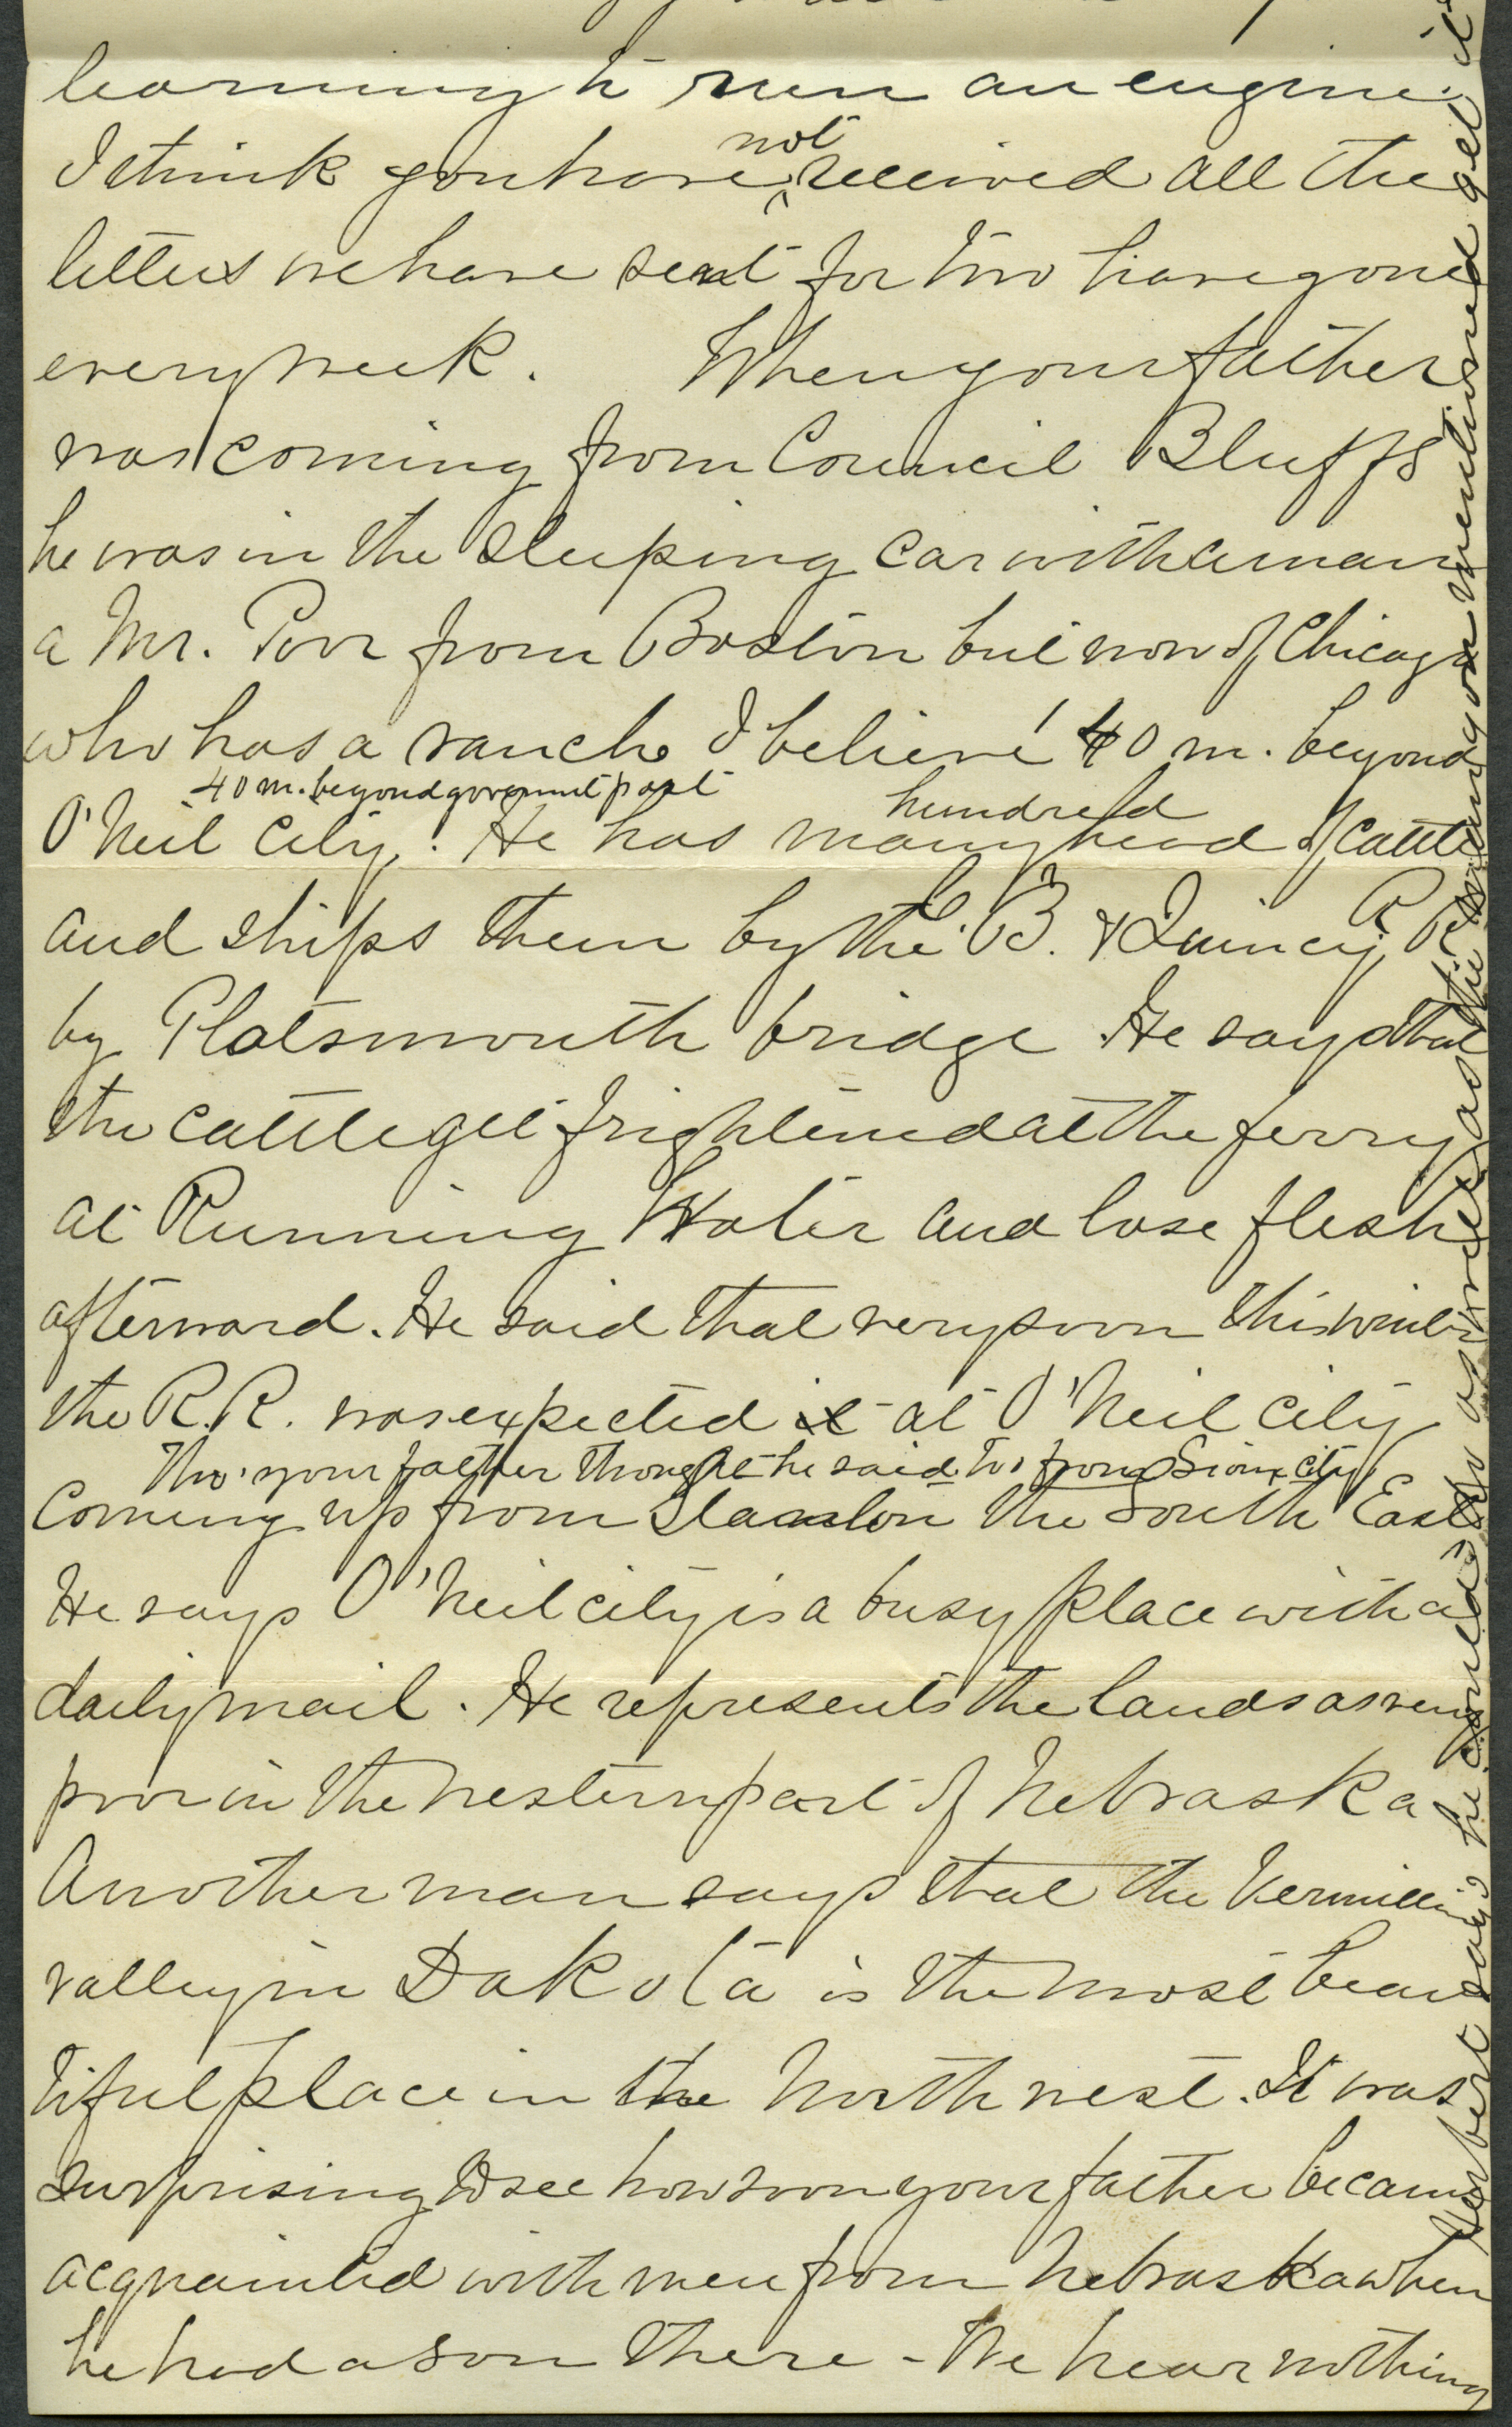 learning to run an engine.
I think you have ^not received all the
letters we have sent for two have gone
every week. When your father
was coming from Council Bluffs
he was in the sleeping car with a man
a Mr. Poor from Boston but now of Chicago
who has a ranch I believe 40 m. beyond
40 m. beyond government post
O'Neil City. He has many hundred head of cattle
and ships them by the C. B. & Quincy R R
by Platsmouth bridge. He says that
the cattle get frightened at the ferry
at Running Water and lose flesh
afterward. He said that very soon this winter
the R.R. was expected at O'Neil City
Tho' your father thought he said to, from Sioux City
Coming up from the South East
He says O'Neil city is a busy place with a
daily mail. He represents the lands as very
poor in the western part of Nebraska
Another man says that the Vermillion
valley in Dakota is the most beau
tiful place in the North west. It was
surprising to see how soon your father became
acquainted with men from Nebraska when
he had a son there - We hear nothing
Herbert says he could do as well as the man you mentioned get